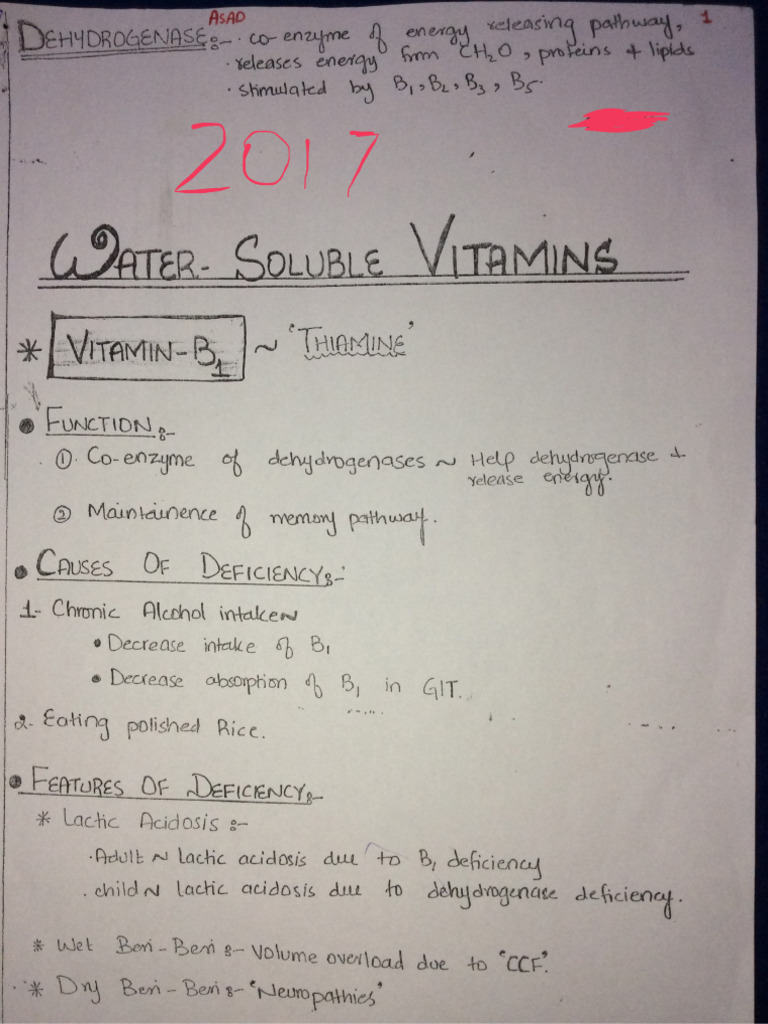 ASAD
1
DEHYDROGENASE:- · co-enzyme of energy releasing pathway,
· releases energy from CH2O, proteins & lipids
· stimulated by B1, B2, B3, B5.
2017
WATER-SOLUBLE VITAMINS
* VITAMIN-B1 ~ 'THIAMINE'
• FUNCTION:-
① Co-enzyme of dehydrogenases ~ Help dehydrogenase &
release energy.
② Maintainence of memory pathway.
• CAUSES OF DEFICIENCY:-
1- Chronic Alcohol intake~
• Decrease intake of B1
• Decrease absorption of B1 in GIT.
2- Eating polished Rice.
• FEATURES OF DEFICIENCY:-
* Lactic Acidosis :-
· Adult ~ lactic acidosis due to B1 deficiency
· child ~ lactic acidosis due to dehydrogenase deficiency.
* Wet Beri-Beri :- Volume overload due to "CCF".
* Dry Beri-Beri :- 'Neuropathies'